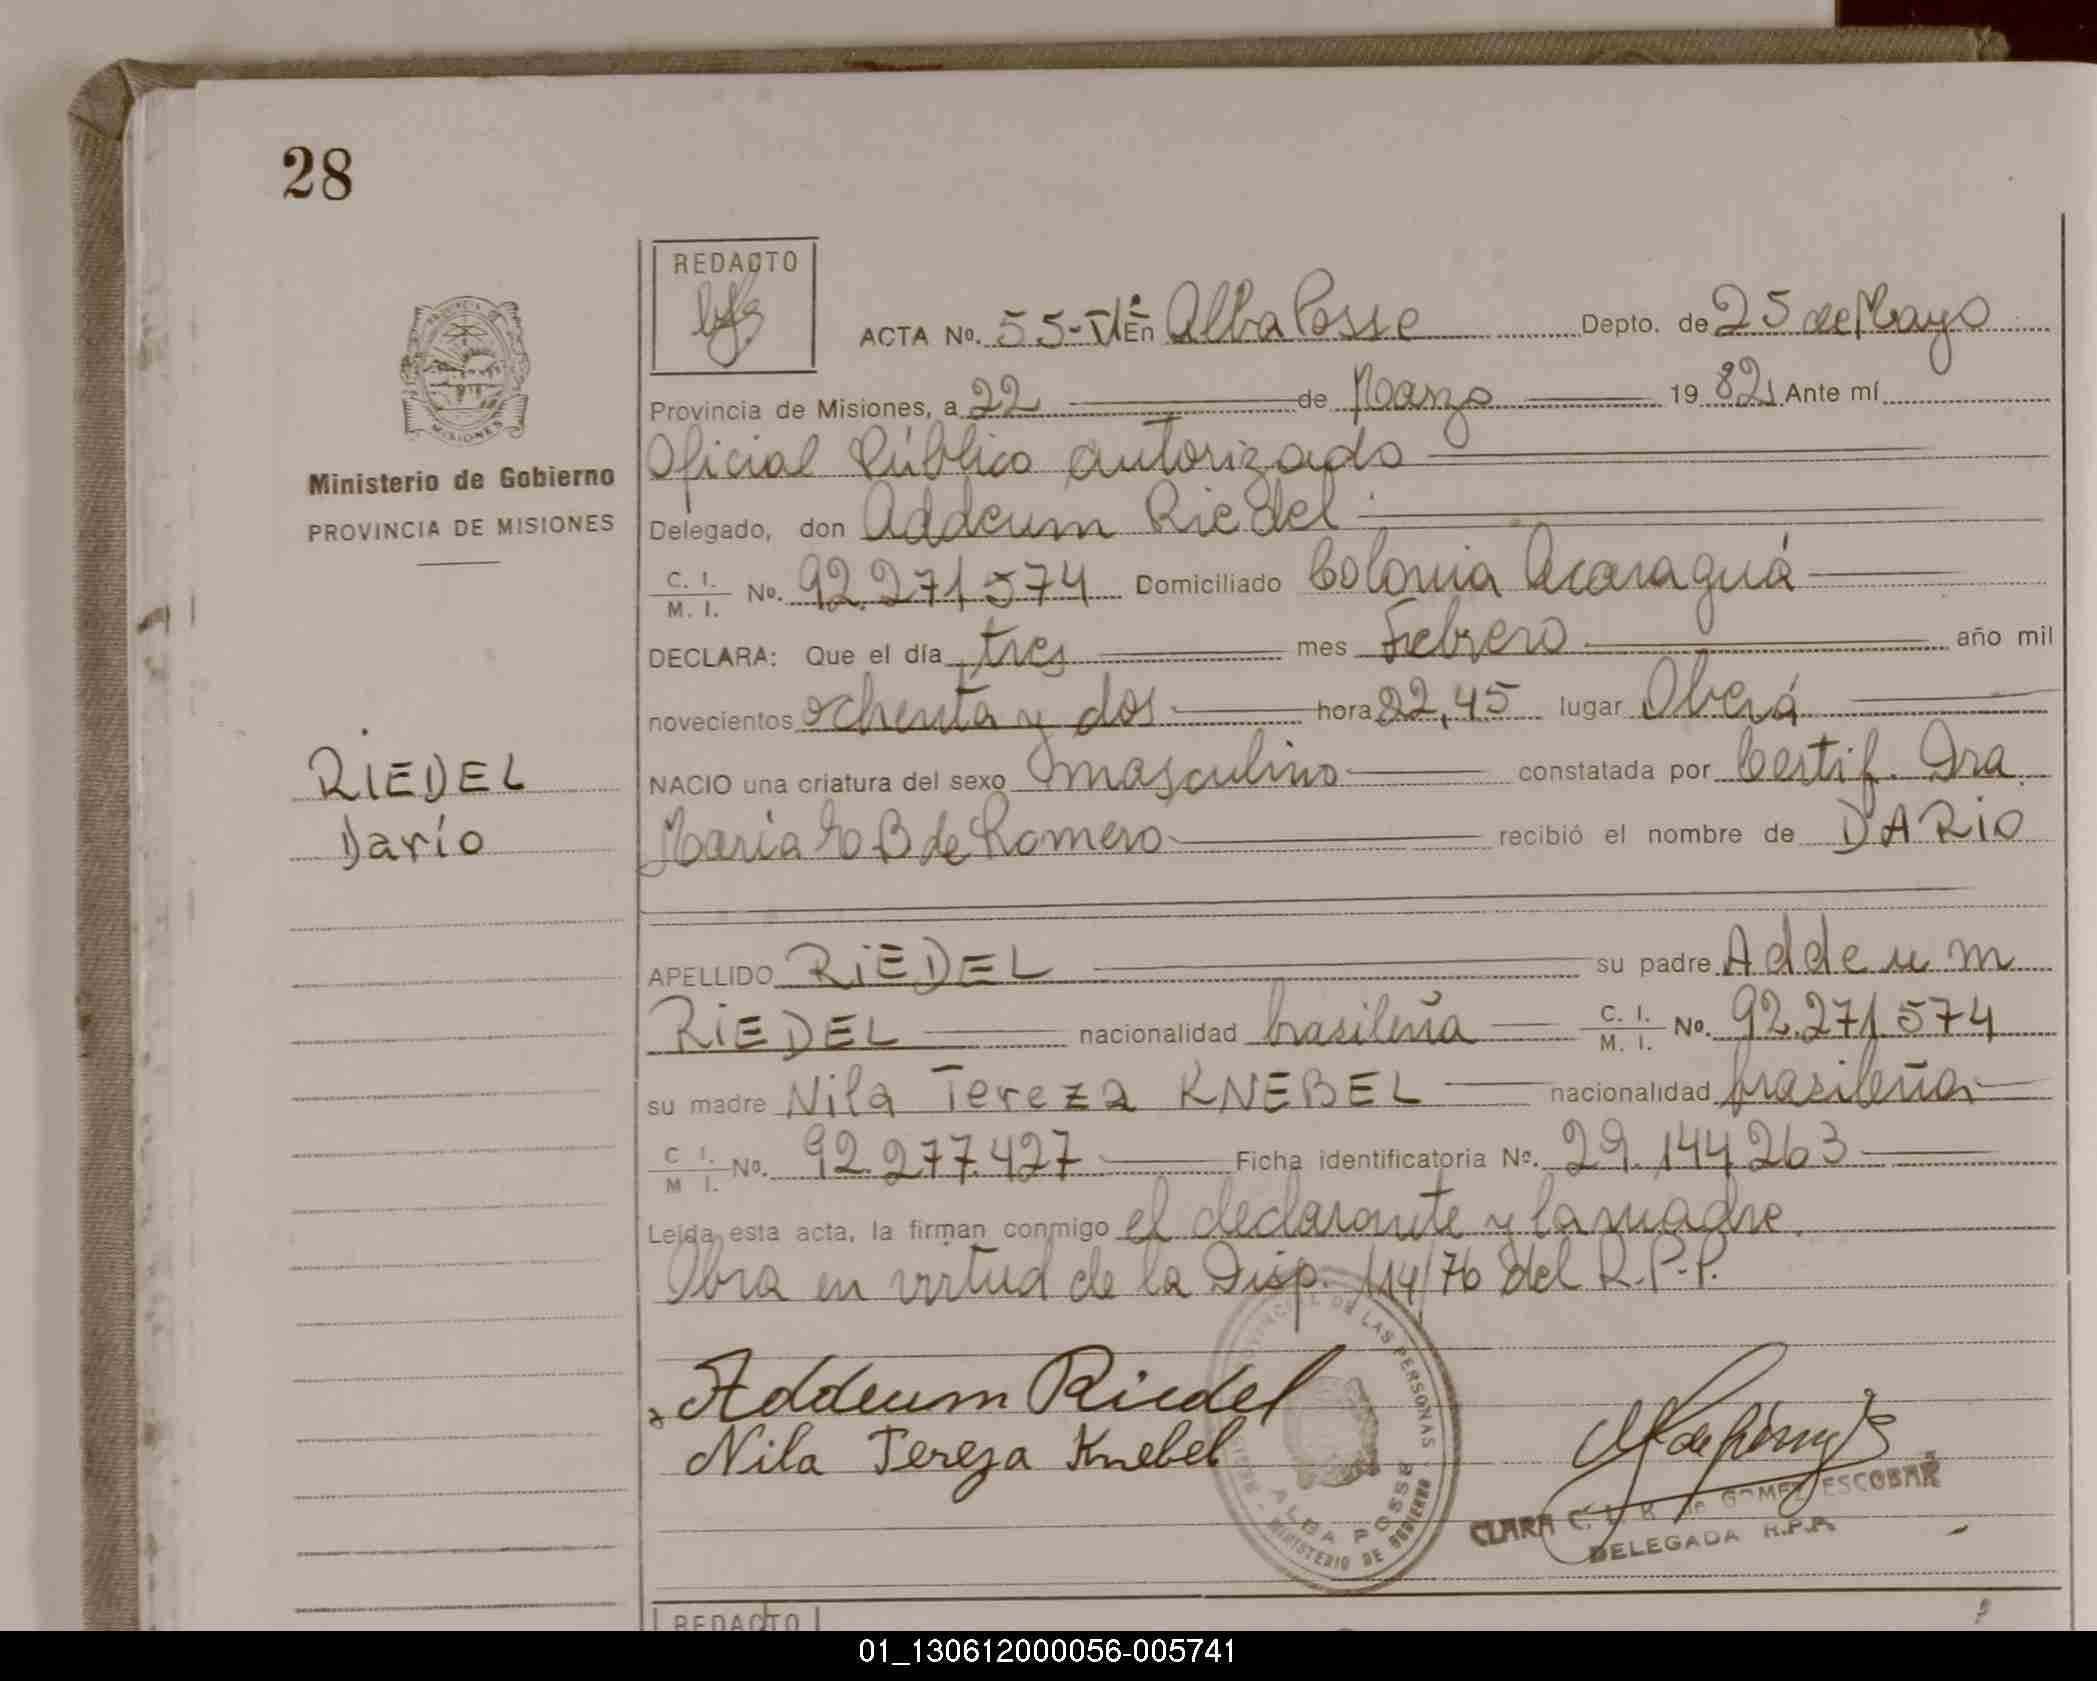 28
Ministerio de Gobierno
PROVINCIA DE MISIONES
RIEDEL
Darío
REDACTO
ACTA No. 55-VI En Alba Posse Depto. de 25 de Mayo
Provincia de Misiones, a 22 de Marzo 19 82 Ante mí
Oficial Público autorizado
Delegado, don Addeum Riedel
C. I. / M. I. No. 92.271.574 Domiciliado Colonia Acaraguá
DECLARA: Que el día tres mes Febrero año mil
novecientos ochenta y dos hora 22,45 lugar Oberá
NACIO una criatura del sexo masculino constatada por Certif. Dra.
María B de Romero recibió el nombre de DARIO
APELLIDO RIEDEL su padre Addeum
RIEDEL nacionalidad brasileña C. I. / M. I. No. 92.271.574
su madre Nila Tereza KNEBEL nacionalidad brasileña
C I. / M I. No. 92.277.427 Ficha identificatoria No. 29.144.263
Leída esta acta, la firman conmigo el declarante y la madre.
Obra en virtud de la Disp. 114/76 del R.P.P.
Addeum Riedel
Nila Tereza Knebel
DE LAS PERSONAS
ALBA POSSE
MINISTERIO DE GOBIERNO
CLARA C. L. R. de GOMEZ ESCOBAR
DELEGADA R.P.P.
REDACTO
01_130612000056-005741